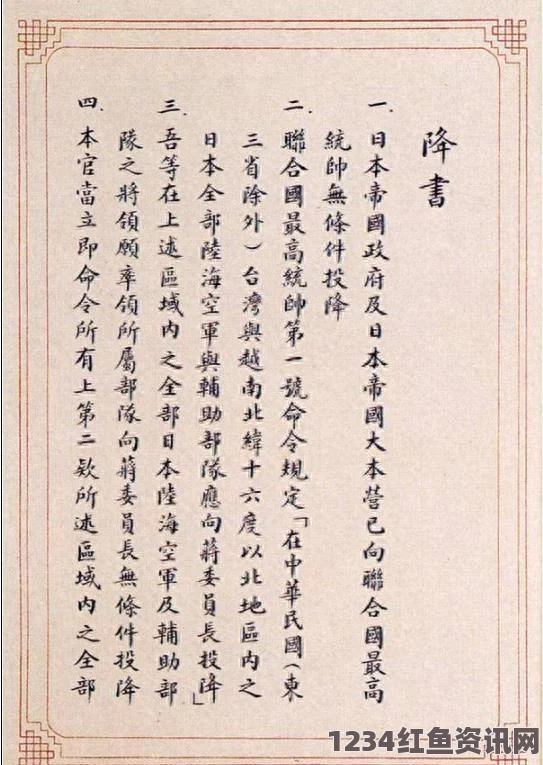 降書
一.日本帝國政府及日本帝國大本營已向聯合國最高
統帥無條件投降
二.聯合國最高統帥第一號命令規定「在中華民國(東
三省除外)台灣與越南北緯十六度以北地區內之
日本全部陸海空軍與輔助部隊應向蔣委員長投降」
三.吾等在上述區域內之全部日本陸海空軍及輔助部
隊之將領願率領所屬部隊向蔣委員長無條件投降
四.本官當立即命令所有上第二欵所述區域內之全部
1234红鱼资讯网